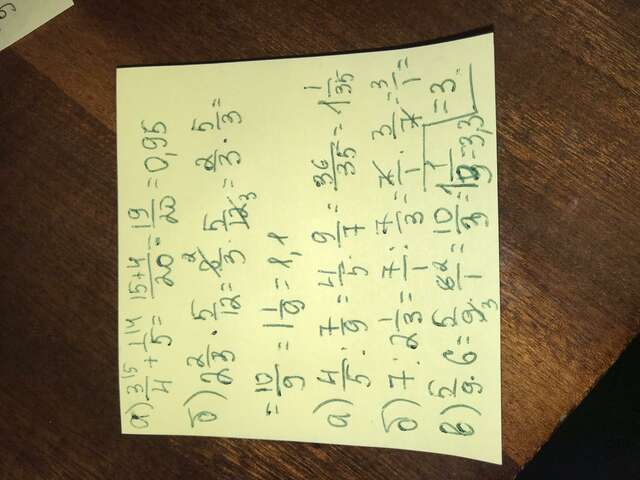 а) 3/4 ⁵ + 1/5 ⁴ = 15+4/20 = 19/20 = 0,95
б) 2 2/3 · 5/12 = 8²/3 · 5/12₃ = 2/3 · 5/3 =
= 10/9 = 1 1/9 = 1,1
а) 4/5 : 7/9 = 4/5 · 9/7 = 36/35 = 1 1/35
б) 7 : 2 1/3 = 7/1 : 7/3 = 7/1 · 3/7 = 3/1 =
= 3
в) 5/9 · 6 = 5/9₃ · 6²/1 = 10/3 = 3,3